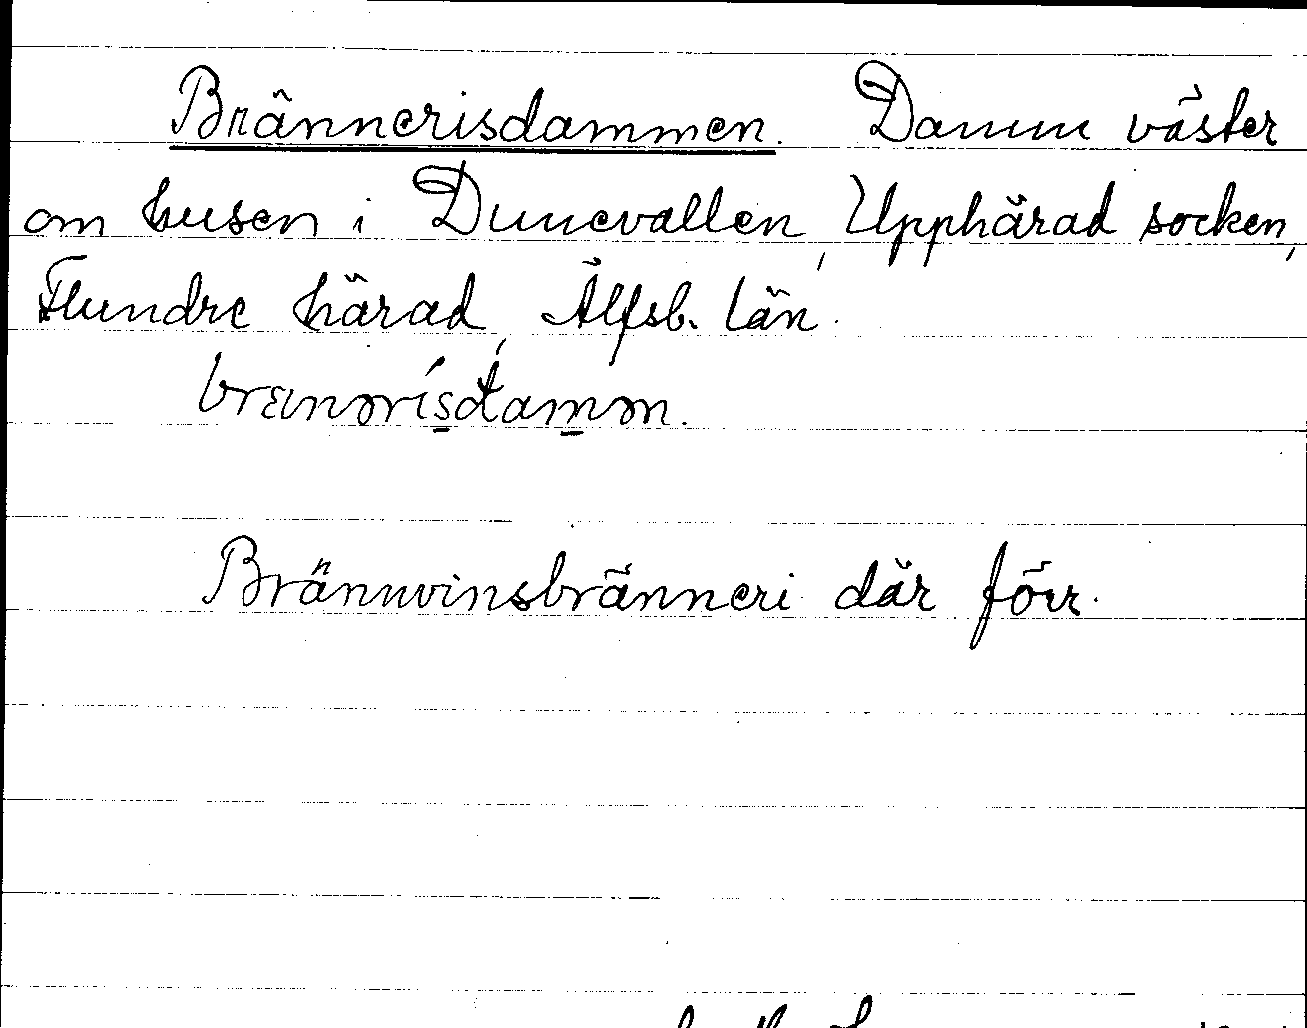 Brännerisdammen. Damm väster
om husen i Dunevallen, Upphärad socken,
Flundre härad, Älfsb. län.
brænərisdamən.
Brännvinsbränneri där förr.